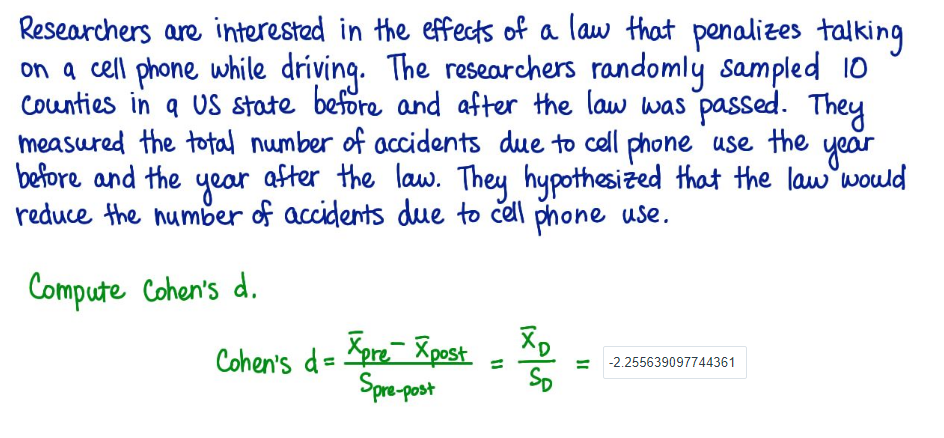 Researchers are interested in the effects of a law that penalizes talking
on a cell phone while driving. The researchers randomly sampled 10
Counties in a US state before and after the law was passed. They
measured the total number of accidents due to cell phone use the year
before and the year after the law. They hypothesized that the law would
reduce the number of accidents due to cell phone use.
Compute Cohen's d.
Cohen's d = (x̄pre - x̄post) / Spre-post = x̄D / SD = -2.255639097744361